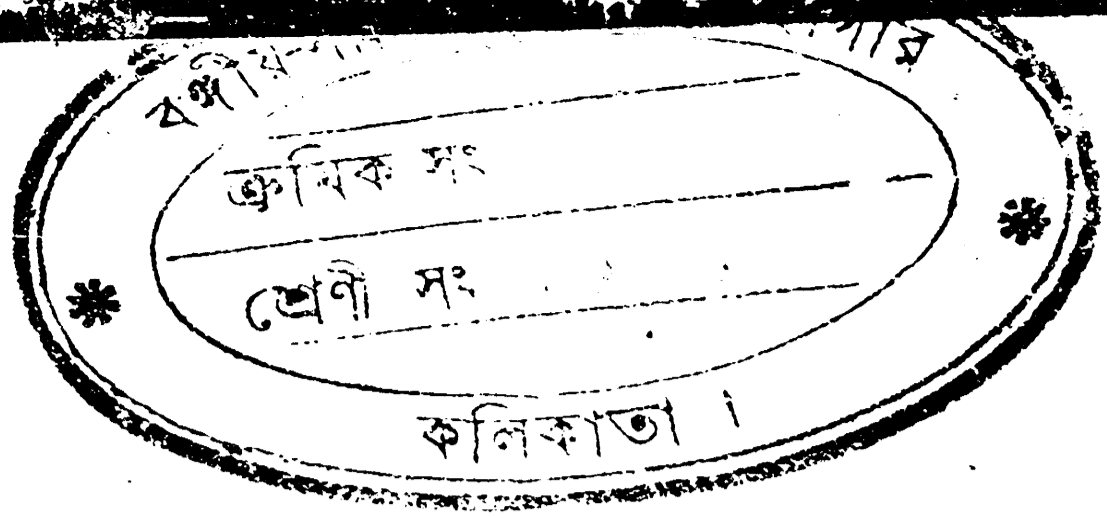 বঙ্গীয়
ক্রমিক সং
শ্রেণী সং
কলিকাতা ।